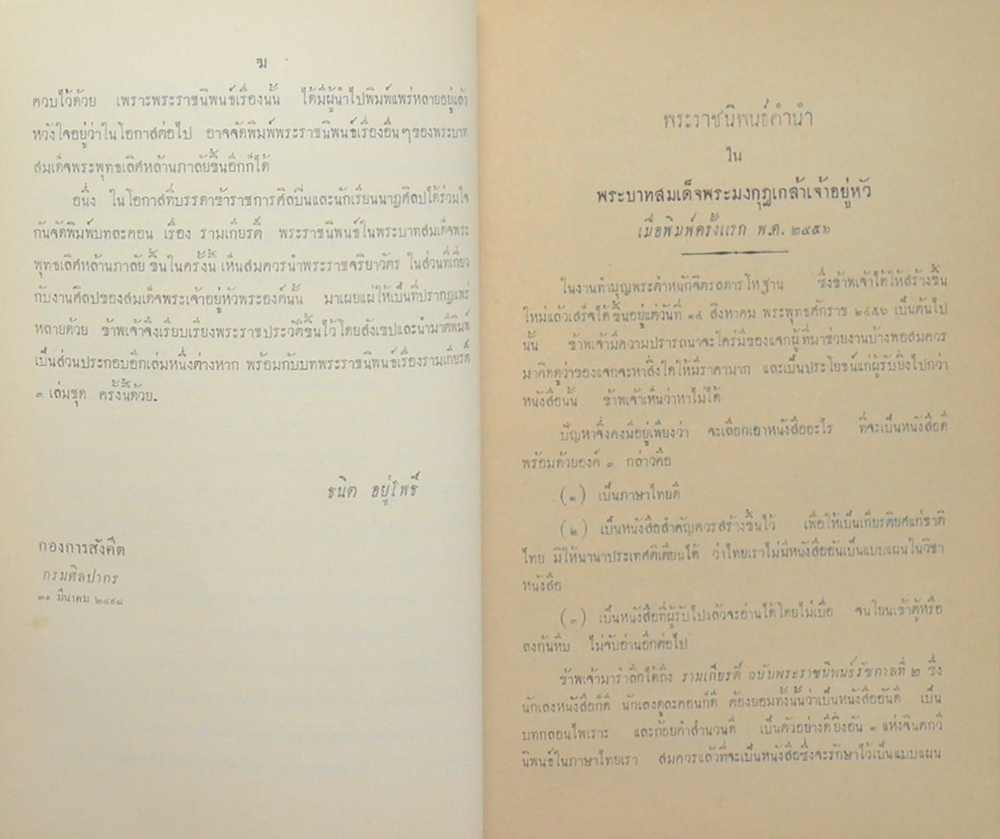 ฆ
ควบไว้ด้วย เพราะพระราชนิพนธ์เรื่องนั้น ได้มีผู้นำไปพิมพ์แพร่หลายอยู่แล้ว
หวังใจอยู่ว่าในโอกาสต่อไป อาจจัดพิมพ์พระราชนิพนธ์เรื่องอื่นๆของพระบาท
สมเด็จพระพุทธเลิศหล้านภาลัยขึ้นอีกก็ได้
อนึ่ง ในโอกาสที่บรรดาข้าราชการศิลปินและนักเรียนนาฏศิลปได้ร่วมใจ
กันจัดพิมพ์บทละคอน เรื่อง รามเกียรติ์ พระราชนิพนธ์ในพระบาทสมเด็จพระ
พุทธเลิศหล้านภาลัย ขึ้นในครั้งนี้ เห็นสมควรนำพระราชจริยาวัตร ในส่วนที่เกี่ยว
กับงานศิลปของสมเด็จพระเจ้าอยู่หัวพระองค์นั้น มาเผยแผ่ให้เป็นที่ปรากฏแพร่
หลายด้วย ข้าพเจ้าจึงเรียบเรียงพระราชประวัติขึ้นไว้โดยสังเขปและนำมาตีพิมพ์
เป็นส่วนประกอบอีกเล่มหนึ่งต่างหาก พร้อมกับบทพระราชนิพนธ์เรื่องรามเกียรติ์
๓ เล่มชุด ครั้งนี้ด้วย.
ธนิต อยู่โพธิ์
กองการสังคีต
กรมศิลปากร
๓๑ มีนาคม ๒๔๙๘
พระราชนิพนธ์คำนำ
ใน
พระบาทสมเด็จพระมงกุฎเกล้าเจ้าอยู่หัว
เมื่อพิมพ์ครั้งแรก พ.ศ. ๒๔๕๖
ในงานทำบุญพระตำหนักจิตรลดารโหฐาน ซึ่งข้าพเจ้าได้ให้สร้างขึ้น
ใหม่แล้วเสร็จได้ขึ้นอยู่แต่วันที่ ๑๔ สิงหาคม พระพุทธศักราช ๒๔๕๖ เป็นต้นไป
นั้น ข้าพเจ้ามีความปรารถนาจะใคร่มีของแจกผู้ที่มาช่วยงานบ้างพอสมควร
มาคิดดูว่าของแจกจะหาสิ่งใดให้มีราคามาก และเป็นประโยชน์แก่ผู้รับยิ่งไปกว่า
หนังสือนั้น ข้าพเจ้าเห็นว่าหาไม่ได้
ปัญหาจึงคงมีอยู่เพียงว่า จะเลือกเอาหนังสืออะไร ที่จะเป็นหนังสือดี
พร้อมด้วยองค์ ๓ กล่าวคือ
(๑) เป็นภาษาไทยดี
(๒) เป็นหนังสือสำคัญควรสร้างขึ้นไว้ เพื่อให้เป็นเกียรติยศแก่ชาติ
ไทย มิให้นานาประเทศติเตียนได้ ว่าไทยเราไม่มีหนังสืออันเป็นแบบแผนในวิชา
หนังสือ
(๓) เป็นหนังสือที่ผู้รับไปแล้วจะอ่านได้โดยไม่เบื่อ จนโยนเข้าตู้หรือ
ลงก้นหีบ ไม่จับอ่านอีกต่อไป
ข้าพเจ้ามารำลึกได้ถึง รามเกียรติ์ ฉบับพระราชนิพนธ์รัชกาลที่ ๒ ซึ่ง
นักเลงหนังสือก็ดี นักเลงดูละคอนก็ดี ต้องยอมทั้งนั้นว่าเป็นหนังสืออันดี เป็น
บทกลอนไพเราะ และถ้อยคำสำนวนดี เป็นตัวอย่างดียิ่งอัน ๑ แห่งจินตกวี
นิพนธ์ในภาษาไทยเรา สมควรแล้วที่จะเป็นหนังสือซึ่งจะรักษาไว้เป็นแบบแผน